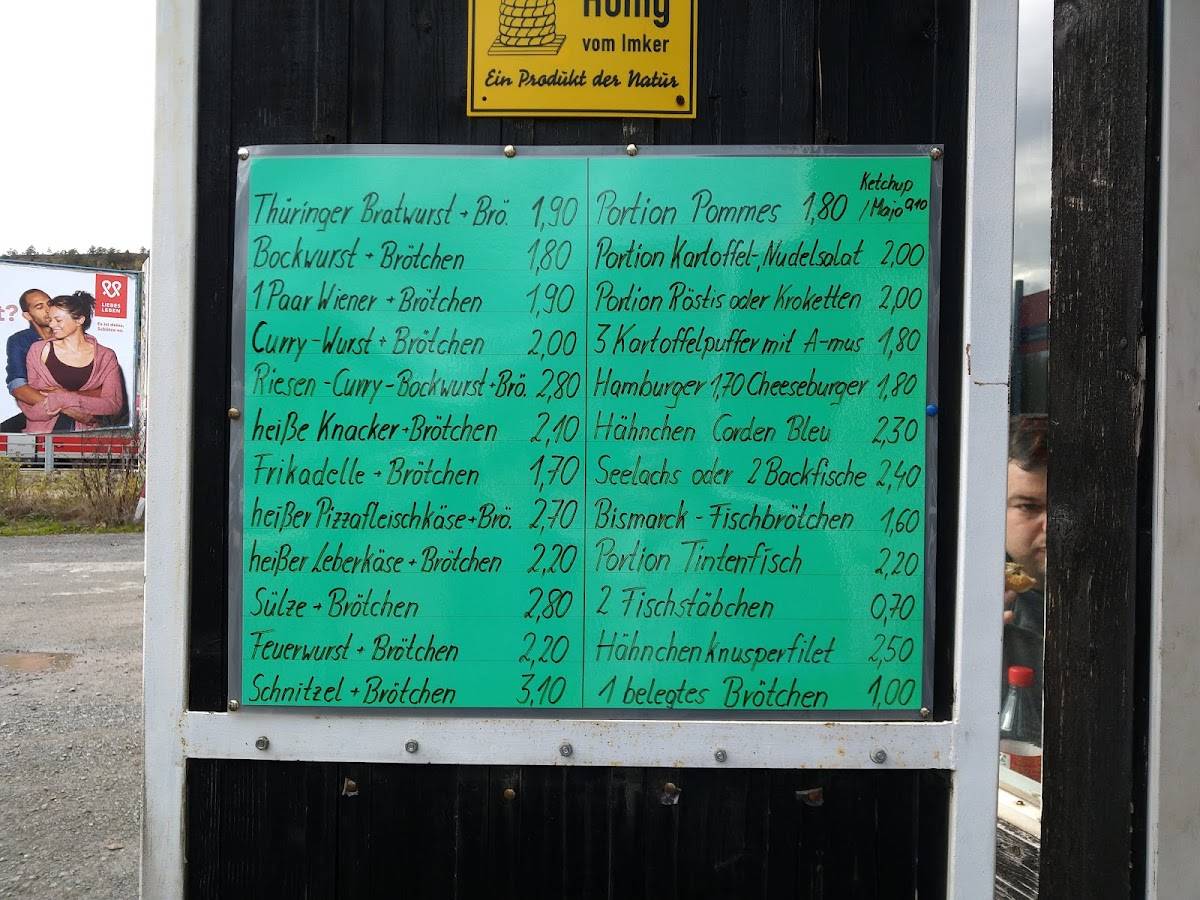 Honig
vom Imker
Ein Produkt der Natur
Thüringer Bratwurst + Brö. 1,90
Bockwurst + Brötchen 1,80
1 Paar Wiener + Brötchen 1,90
Curry-Wurst + Brötchen 2,00
Riesen-Curry-Bockwurst + Brö. 2,80
heiße Knacker + Brötchen 2,10
Frikadelle + Brötchen 1,70
heißer Pizzafleischkäse + Brö. 2,70
heißer Leberkäse + Brötchen 2,20
Sülze + Brötchen 2,80
Feuerwurst + Brötchen 2,20
Schnitzel + Brötchen 3,10
Portion Pommes 1,80 Ketchup
/Majo 0,10
Portion Kartoffel-, Nudelsalat 2,00
Portion Röstis oder Kroketten 2,00
3 Kartoffelpuffer mit A-mus 1,80
Hamburger 1,70 Cheeseburger 1,80
Hähnchen Corden Bleu 2,30
Seelachs oder 2 Backfische 2,40
Bismarck - Fischbrötchen 1,60
Portion Tintenfisch 2,20
2 Fischstäbchen 0,70
Hähnchenknusperfilet 2,50
1 belegtes Brötchen 1,00
t?
LIEBES
LEBEN